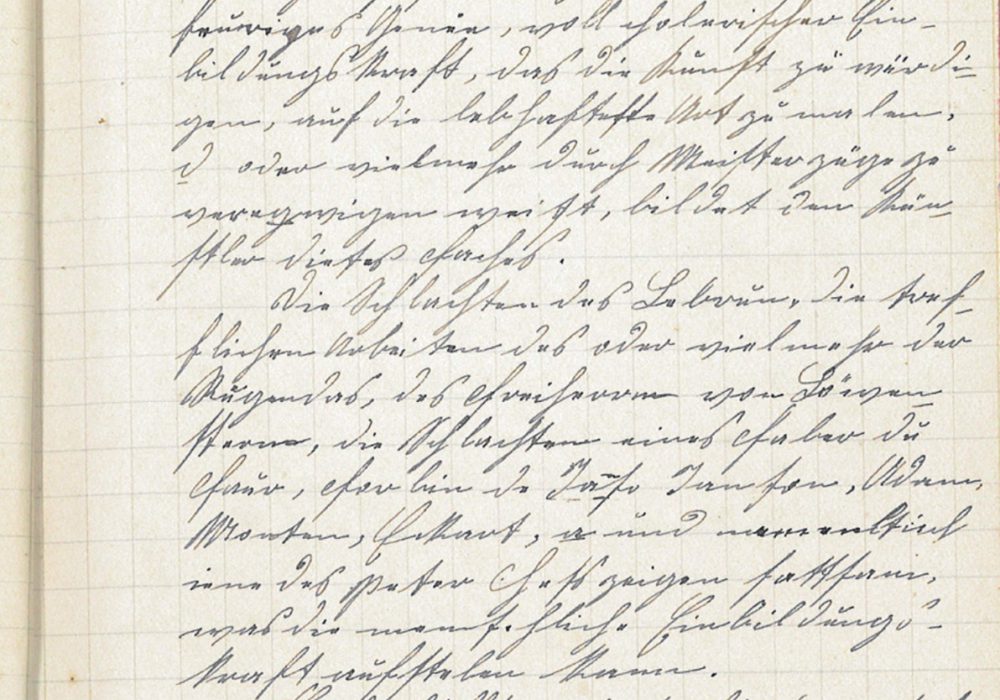 feuriges Genie, voll cholerischer Ein-
bildungskraft, das die Kunst zu würdi-
gen, auf die lebhafteste Art zu malen,
d oder vielmehr durch Meisterzüge zu
verewigen weißt, bildet den Kün-
stler dieses Faches.
Die Schlachten des Lebrun, die tref-
flichen Arbeiten des oder vielmehr der
Rugendas, des Freiherrn von Löwen
stern, die Schlachten eines Faber du
Faur, Forbin de Janson, Adam,
Monten, Eckart, und namentlich
jene des Peter Hess zeigen sattsam,
was die menschliche Einbildungs-
kraft aufstelen kann.